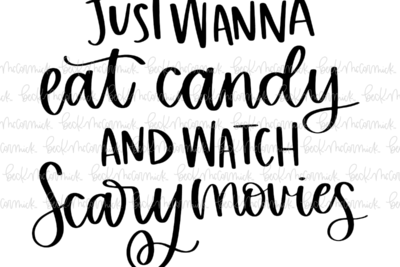 JUST WANNA
eat candy
AND WATCH
Scary movies